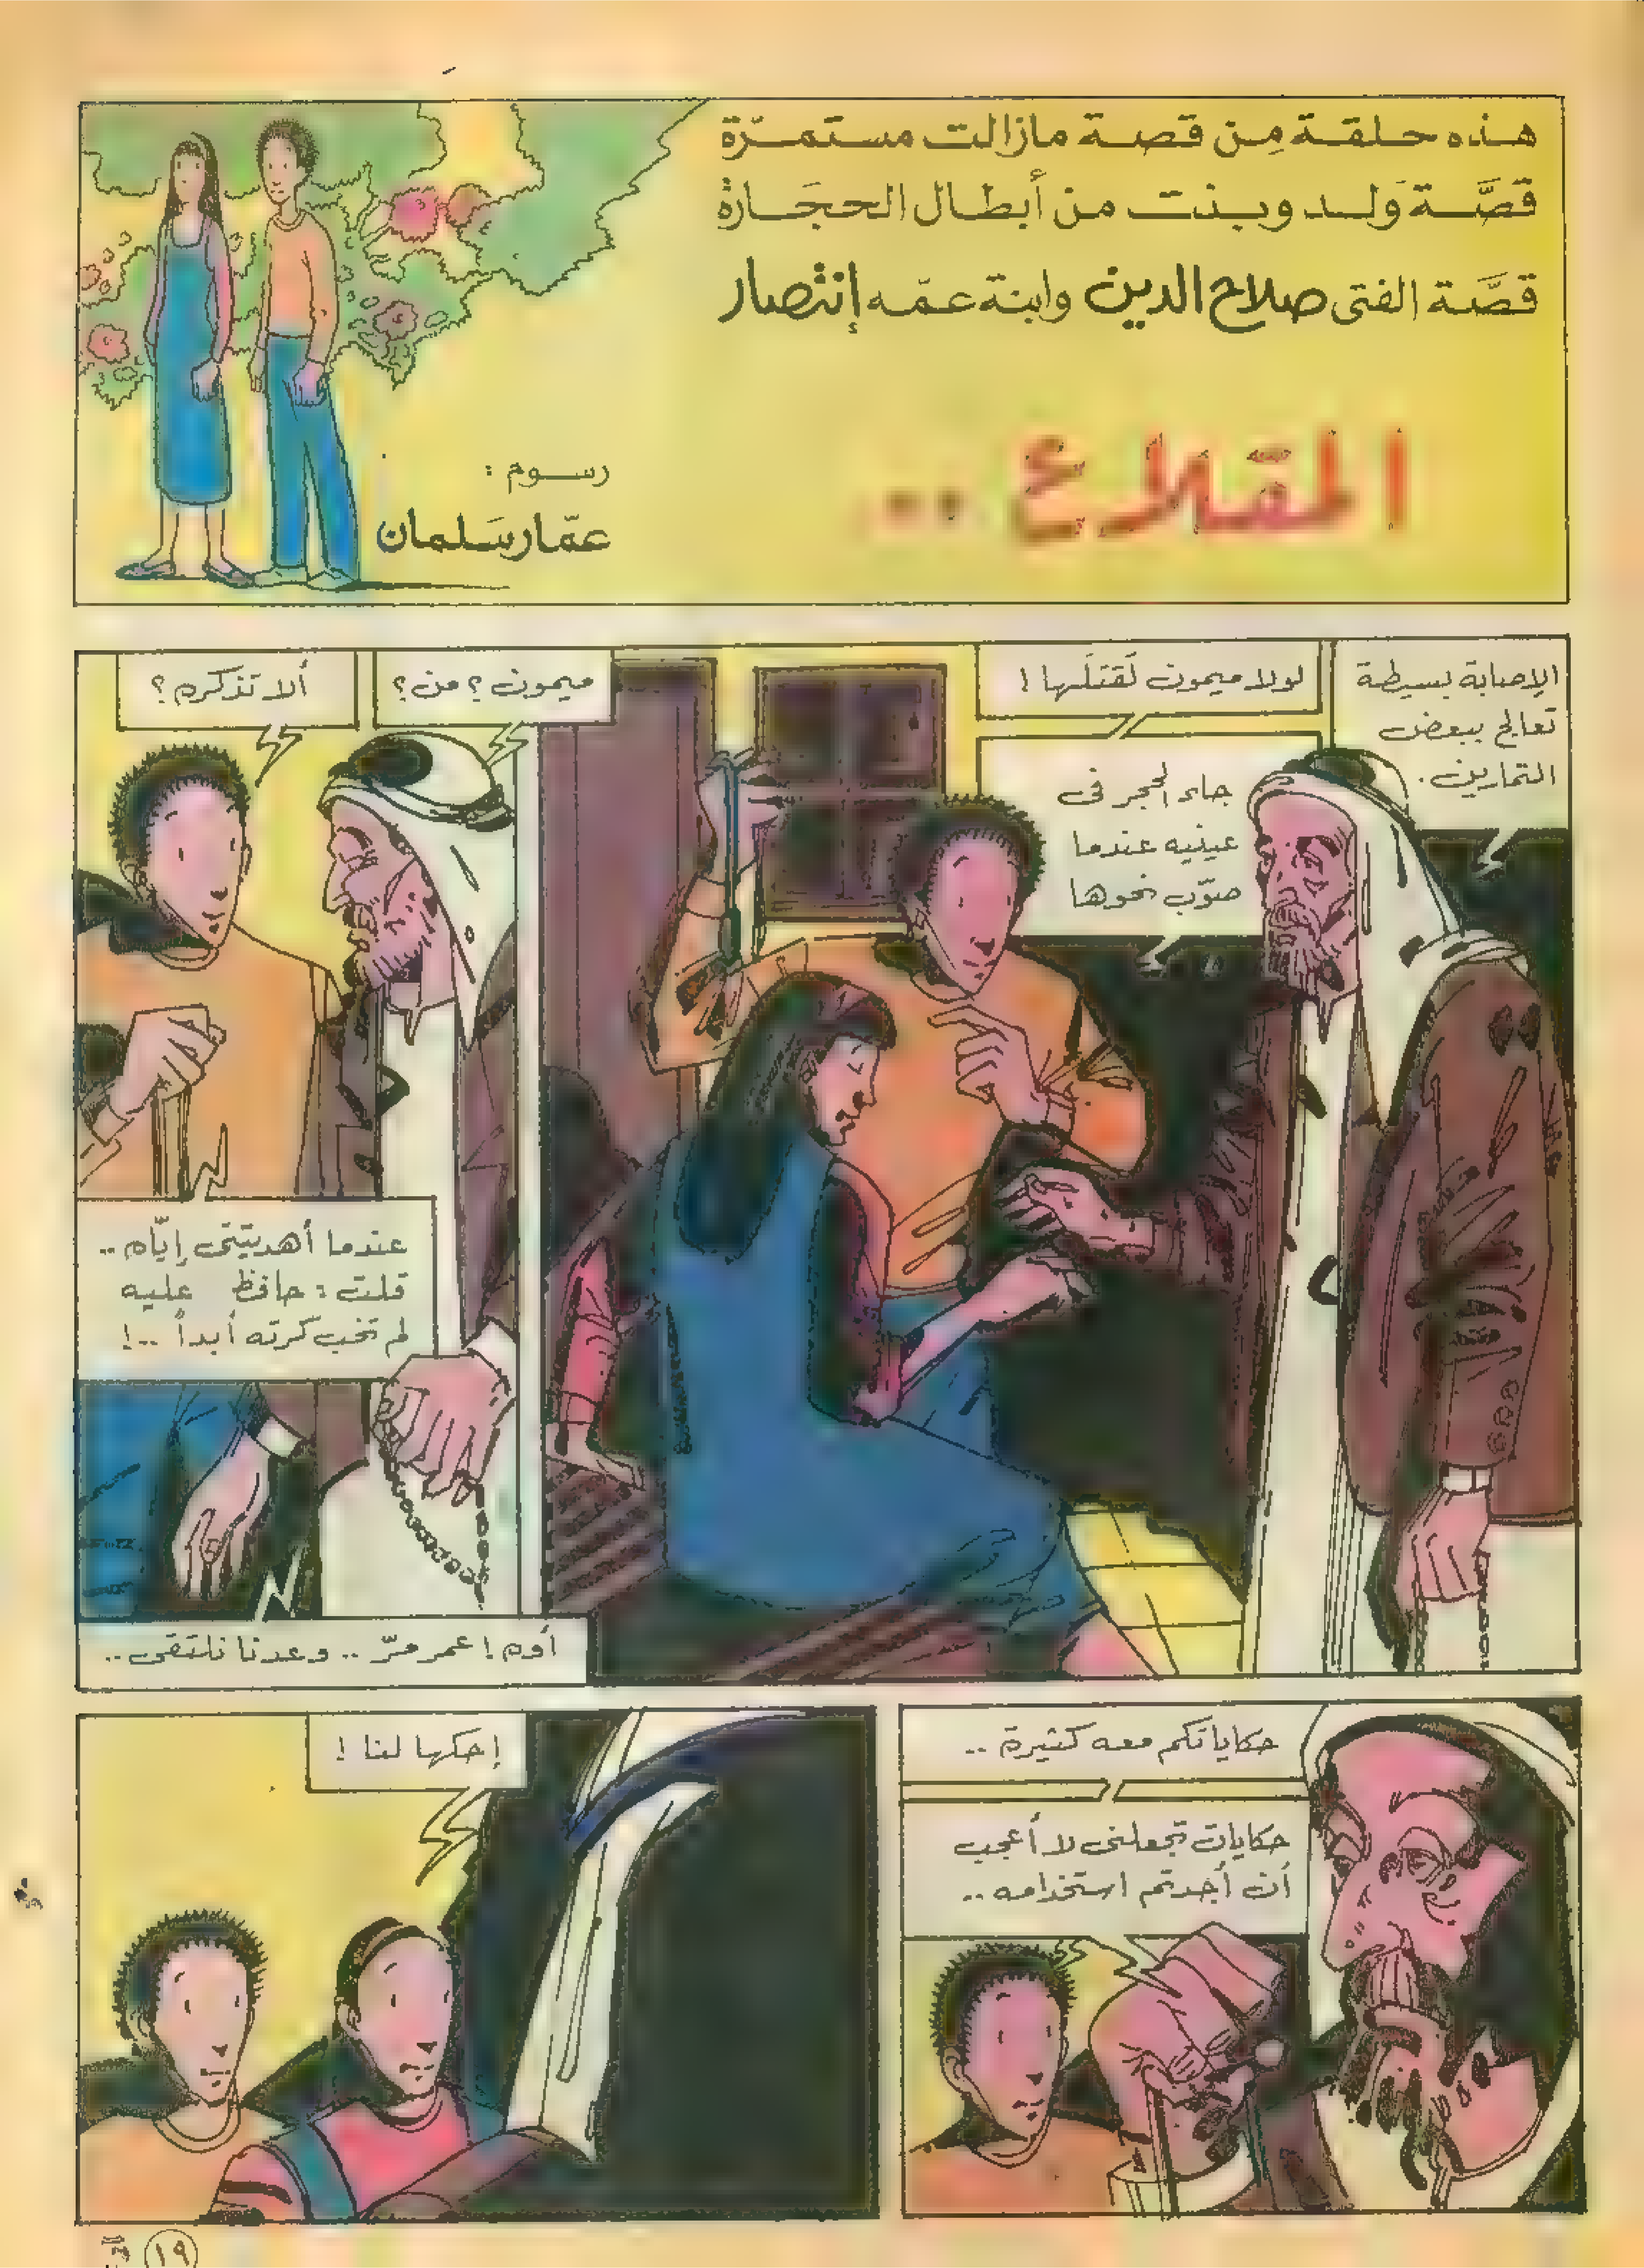 هذه حلقة مِن قصة مازالت مستمرّة
قصَّة وَلد وبنت من أبطال الحجَارة
قصَّة الفتى صلاح الدين وابنة عمّه إنتصار
المقلاع ..
رسوم :
عمّار سَلمان
الإصابة بسيطة
تعالج ببعض
التمارين .
لولا ميمون لَقتلَها !
جاء الحجر في
عينيه عندما
صوّب نحوها
ميمون ؟ من ؟
ألا تذكره ؟
عندما أهديتني إيّاه ..
قلت : حافظ عليه
لم تخب كرته أبداً ..!
أوه ! عمر مرّ .. وعدنا نلتقي ..
حكاياتكم معه كثيرة ..
حكايات تجعلني لا أعجب
أن أجدتم استخدامه ..
إحكها لنا !
١٩